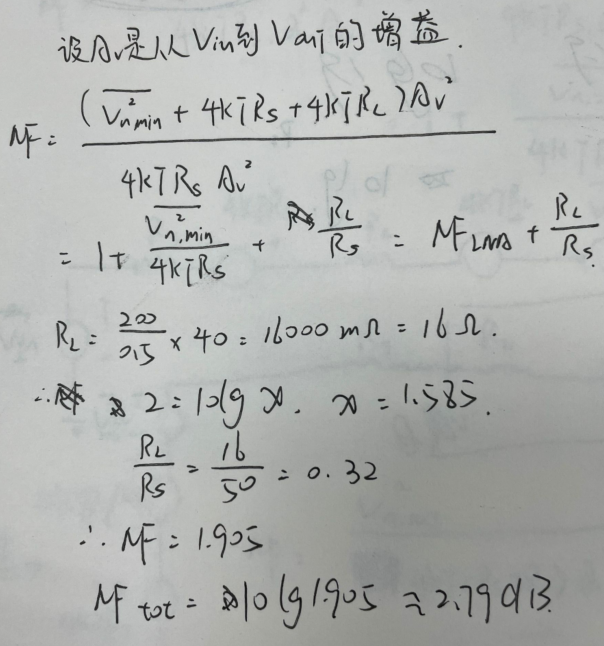 设Av是从Vin到Vout的增益.
NF = \frac{(\overline{V_{n\,min}^2} + 4kTR_S + 4kTR_L) A_v^2}{4kTR_S A_v^2}
= 1 + \frac{\overline{V_{n,min}^2}}{4kTR_S} + \frac{R_L}{R_S} = NF_{LNA} + \frac{R_L}{R_S}.
R_L = \frac{200}{0.5} × 40 = 16000 mΩ = 16 Ω.
∴ 2 = 10lg x. x = 1.585.
\frac{R_L}{R_S} = \frac{16}{50} = 0.32
∴ NF = 1.905
NF_{tot} = 10 lg 1.905 ≈ 2.79 dB.